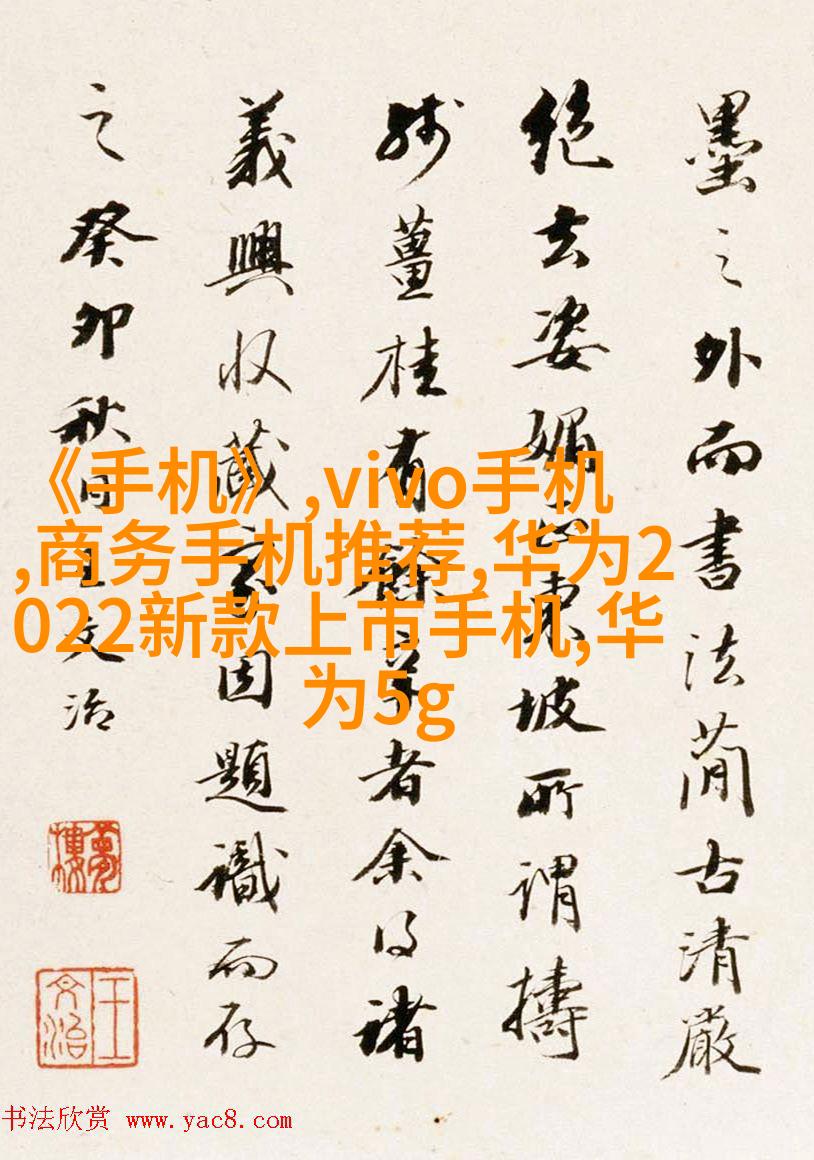 墨之外而書法簡古清嚴
絶去姿媚正東坡所謂擣
殘薑桂有餘辛者余得諸
義興收藏家因題識而存
之癸卯秋日王文治
夢樓
王文治
《手机》,vivo手机
,商务手机推荐,华为2
022新款上市手机,华
为5g
书法欣赏 www.yac8.com